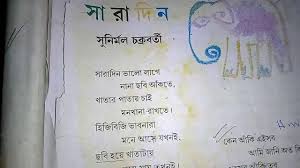 সা রা দি ন
সুনির্মল চক্রবর্তী
সারাদিন ভালো লাগে
নানা ছবি আঁকতে,
খাতার পাতায় চাই
মনখানা রাখতে।
হিজিবিজি ভাবনারা
মনে আসে যখনই,
ছবি হয়ে খাতাটায়
কেন আঁকি এইসব
আমি জানি